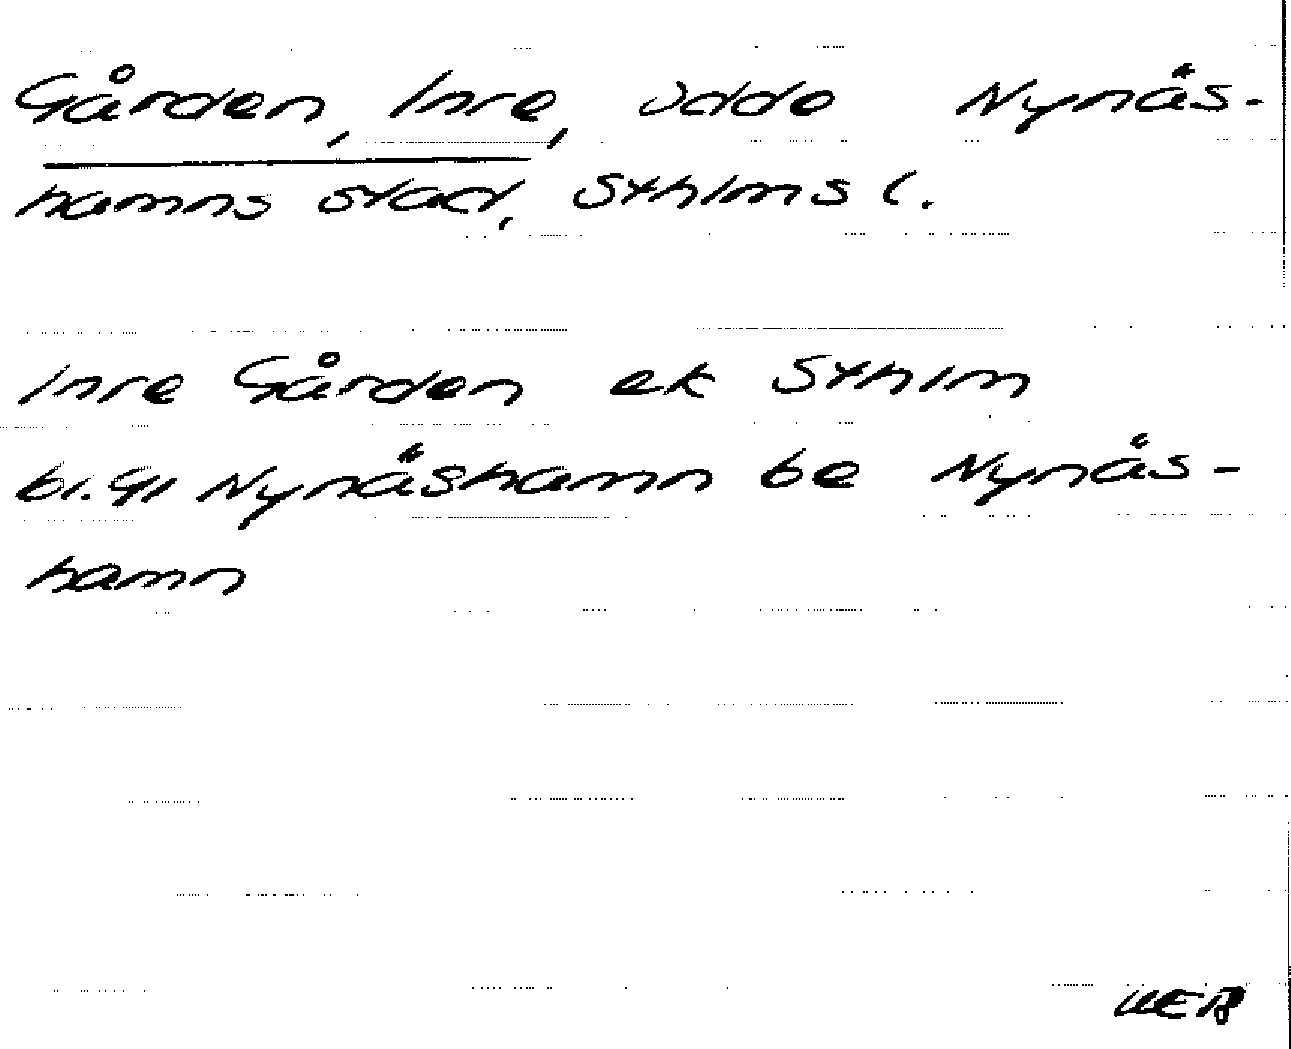 Gården, Inre, udde Nynäs-
hamns stad, Sthlms l.
Inre Gården ek Sthlm
bl. 91 Nynäshamn be Nynäs-
hamn
WEB